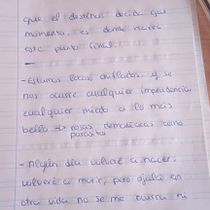 que el destino decida que
momento, es donde
este punto final.
—
- Estamos locos chiflados, y se
nos ocurre cualquier imprudencia
cualquier miedo a lo mas
bello → rosas, demoníacas como
parásito
- Algún día volveré a nacer,
volveré a morir, pero ojalá en
otra vida no se me ocurra ni